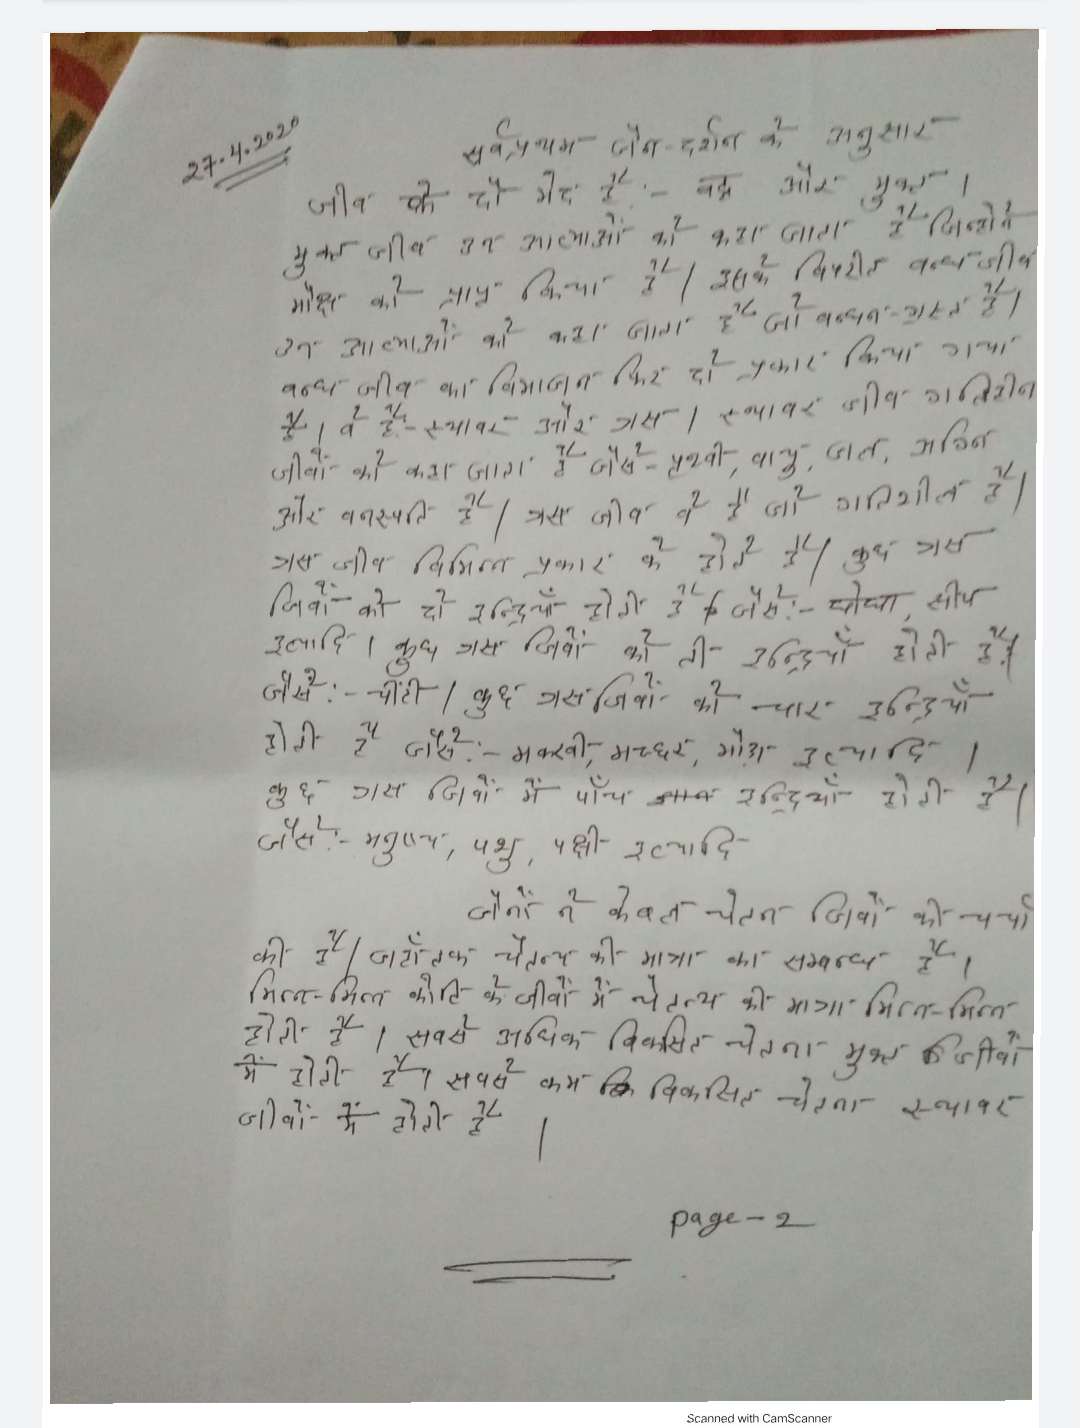 27.4.2020
सर्वप्रथम जैन-दर्शन के अनुसार
जीव के दो भेद हैं:- बद्ध और मुक्त ।
मुक्त जीव उन आत्माओं को कहा जाता है जिन्होंने
मोक्ष को प्राप्त किया है । इसके विपरीत बन्ध जीव
उन आत्माओं को कहा जाता है जो बन्धन-ग्रस्त हैं ।
बन्ध जीव का विभाजन फिर दो प्रकार किया गया
है । वे हैं:- स्थावर और त्रस । स्थावर जीव गतिहीन
जीवों को कहा जाता है जैसे- पृथ्वी, वायु, जल, अग्नि
और वनस्पति हैं । त्रस जीव वे हैं जो गतिशील हैं ।
त्रस जीव विभिन्न प्रकार के होते हैं । कुछ त्रस
जिवों को दो इन्द्रियाँ होती हैं जैसे:- घोंघा, सीप
इत्यादि । कुछ त्रस जिवों को ती इन्द्रियाँ होती हैं ।
जैसे:- चींटी । कुछ त्रस जिवों को चार इन्द्रियाँ
होती हैं जैसे:- मक्खी, मच्छर, भौंरा इत्यादि ।
कुछ त्रस जिवों में पाँच इन्द्रियाँ होती हैं ।
जैसे:- मनुष्य, पशु, पक्षी इत्यादि
जैनों ने केवल चेतन जिवों की चर्चा
की है । जहाँ तक चैतन्य की मात्रा का सम्बन्ध है ।
भिन्न-भिन्न कोटि के जीवों में चैतन्य की मात्रा भिन्न-भिन्न
होती है । सबसे अधिक विकसित चेतना मुक्त जीवों
में होती है । सबसे कम विकसित चेतना स्थावर
जीवों में होती है ।
page-2
Scanned with CamScanner